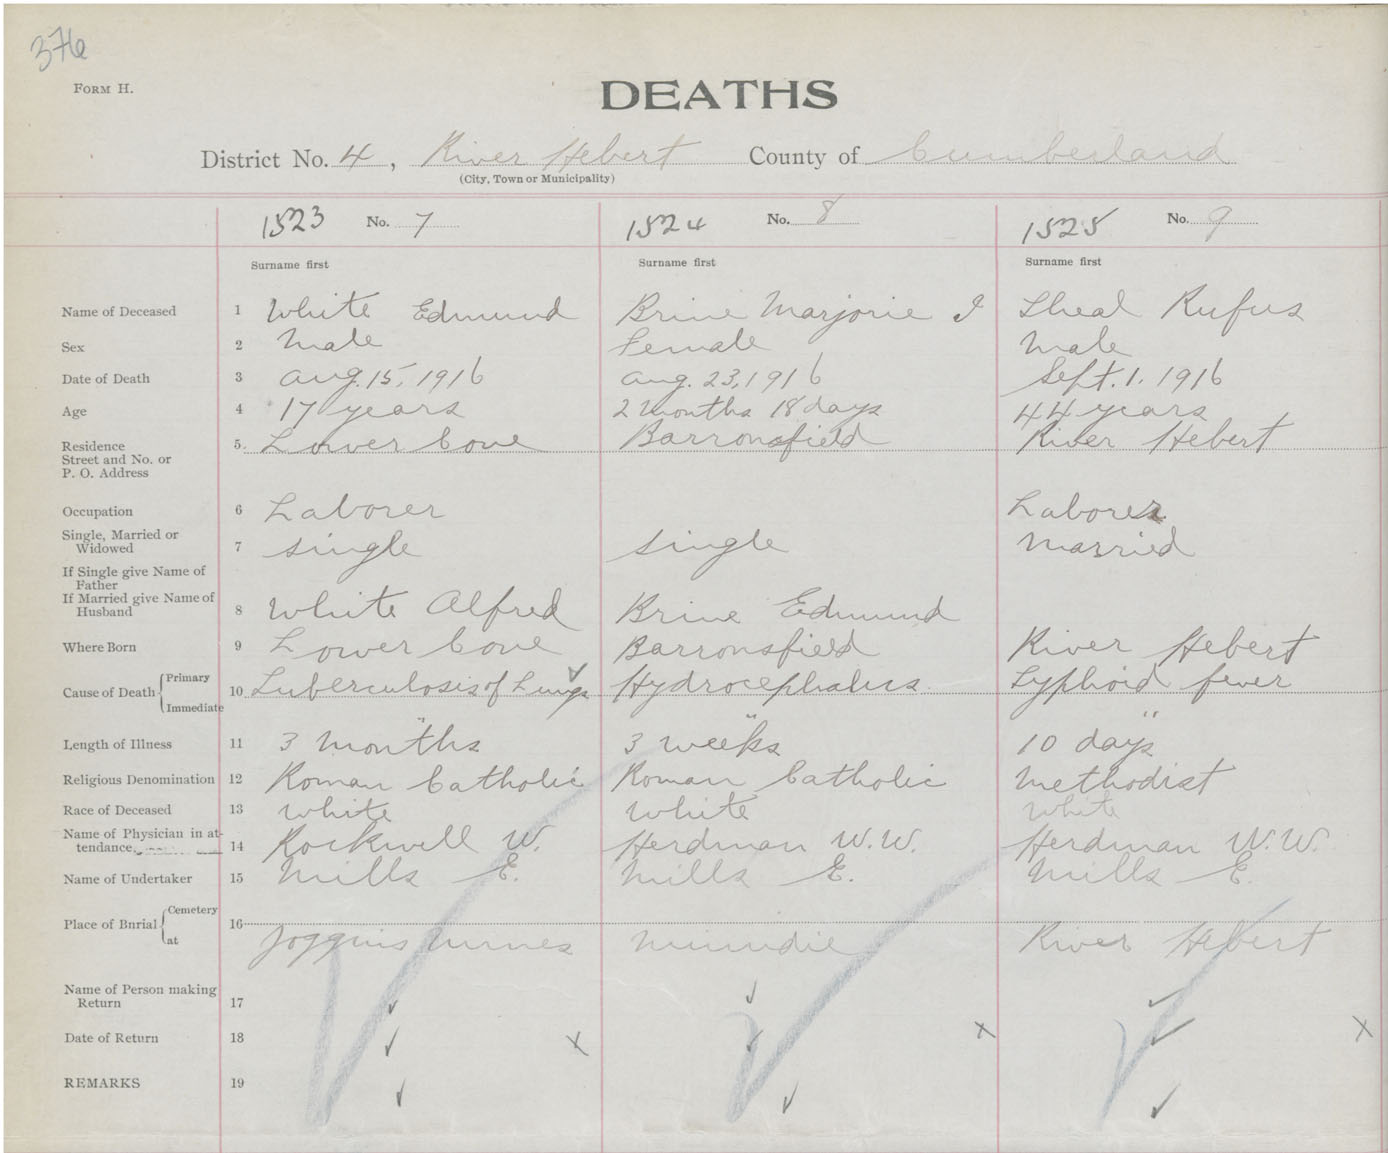 376
FORM H.
DEATHS
District No. 4, River Hebert County of Cumberland
(City, Town or Municipality)
1523 No. 7 1524 No. 8 1525 No. 9
Surname first Surname first Surname first
Name of Deceased 1 White Edmund Brine Marjorie I Sheal Rufus
Sex 2 Male Female Male
Date of Death 3 Aug. 15, 1916 Aug. 23, 1916 Sept. 1. 1916
Age 4 17 years 2 months 18 days 44 years
Residence 5. Lower Cove Barronsfield River Hebert
Street and No. or
P. O. Address
Occupation 6 Laborer Laborer
Single, Married or
Widowed 7 Single Single Married
If Single give Name of
Father
If Married give Name of
Husband 8 White Alfred Brine Edmund
Where Born 9 Lower Cove Barronsfield River Hebert
Cause of Death Primary 10 Tuberculosis of Lungs Hydrocephalus Typhoid fever
Immediate " " "
Length of Illness 11 3 months 3 weeks 10 days
Religious Denomination 12 Roman Catholic Roman Catholic Methodist
Race of Deceased 13 White White White
Name of Physician in at-
tendance. 14 Rockwell W. Herdman W.W. Herdman W.W.
Name of Undertaker 15 Mills E. Mills E. Mills E.
Place of Burial Cemetery 16
at Joggins Mines Minudie River Hebert
Name of Person making
Return 17
Date of Return 18 x x x
REMARKS 19